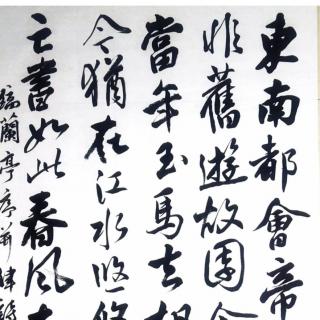 東南都會帝
非舊遊故園
當年玉馬去
今猶在江水悠悠
亡書如此春風
臨蘭亭序並律詩